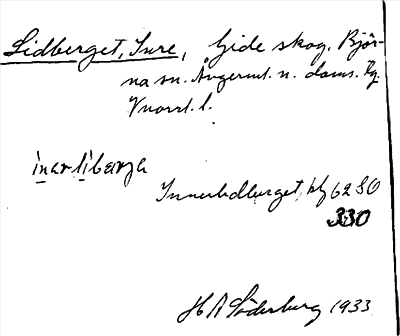 Lidberget, Inre, Gide skog. Björ-
na sn. Ångerml. n. doms. tg.
Vnorrl. l.
ìnar lìbærja
Innerlidberget, blg 62 SO
330
H A Söderberg 1933